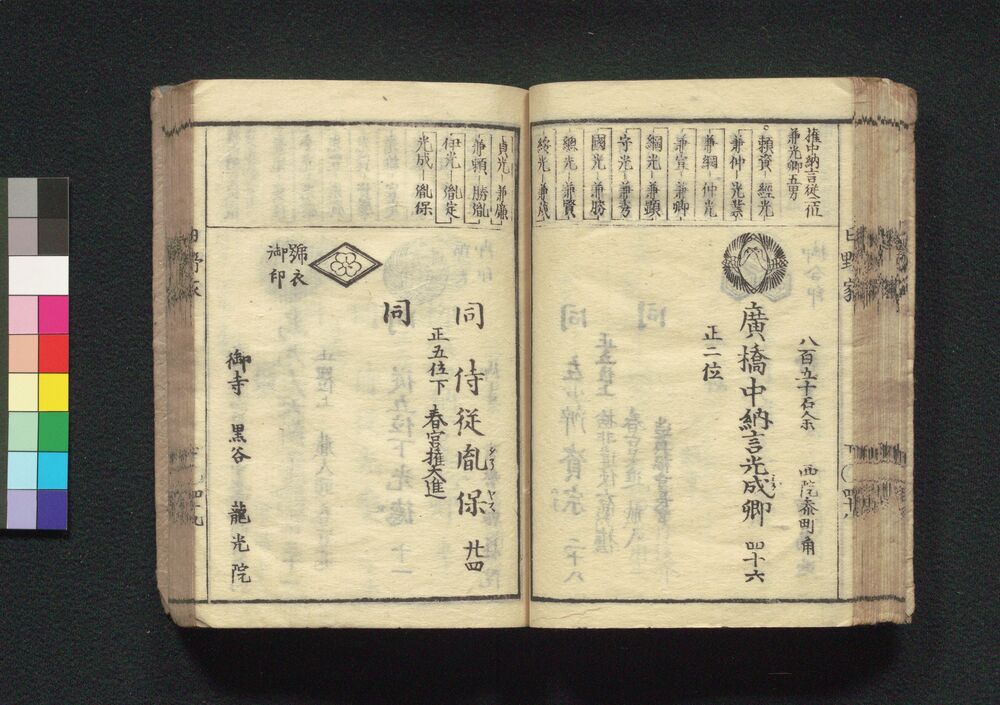 権中納言従一位
兼光卿五男
頼資 経光
兼仲 光業
兼綱 仲光
兼宣 兼郷
綱光 兼顕
守光 兼秀
國光 兼勝
總光 兼賢
綏光 兼茂
貞光 兼廉
兼頼 勝胤
伊光 胤定
光成 胤保
八百五十石余 西院参町角
廣橋中納言光成卿 四十六
正二位
同 侍従胤保 廿四
正五位下 春宮権大進
同
號衣
御印
御寺 黒谷 龍光院
日野家
日野家